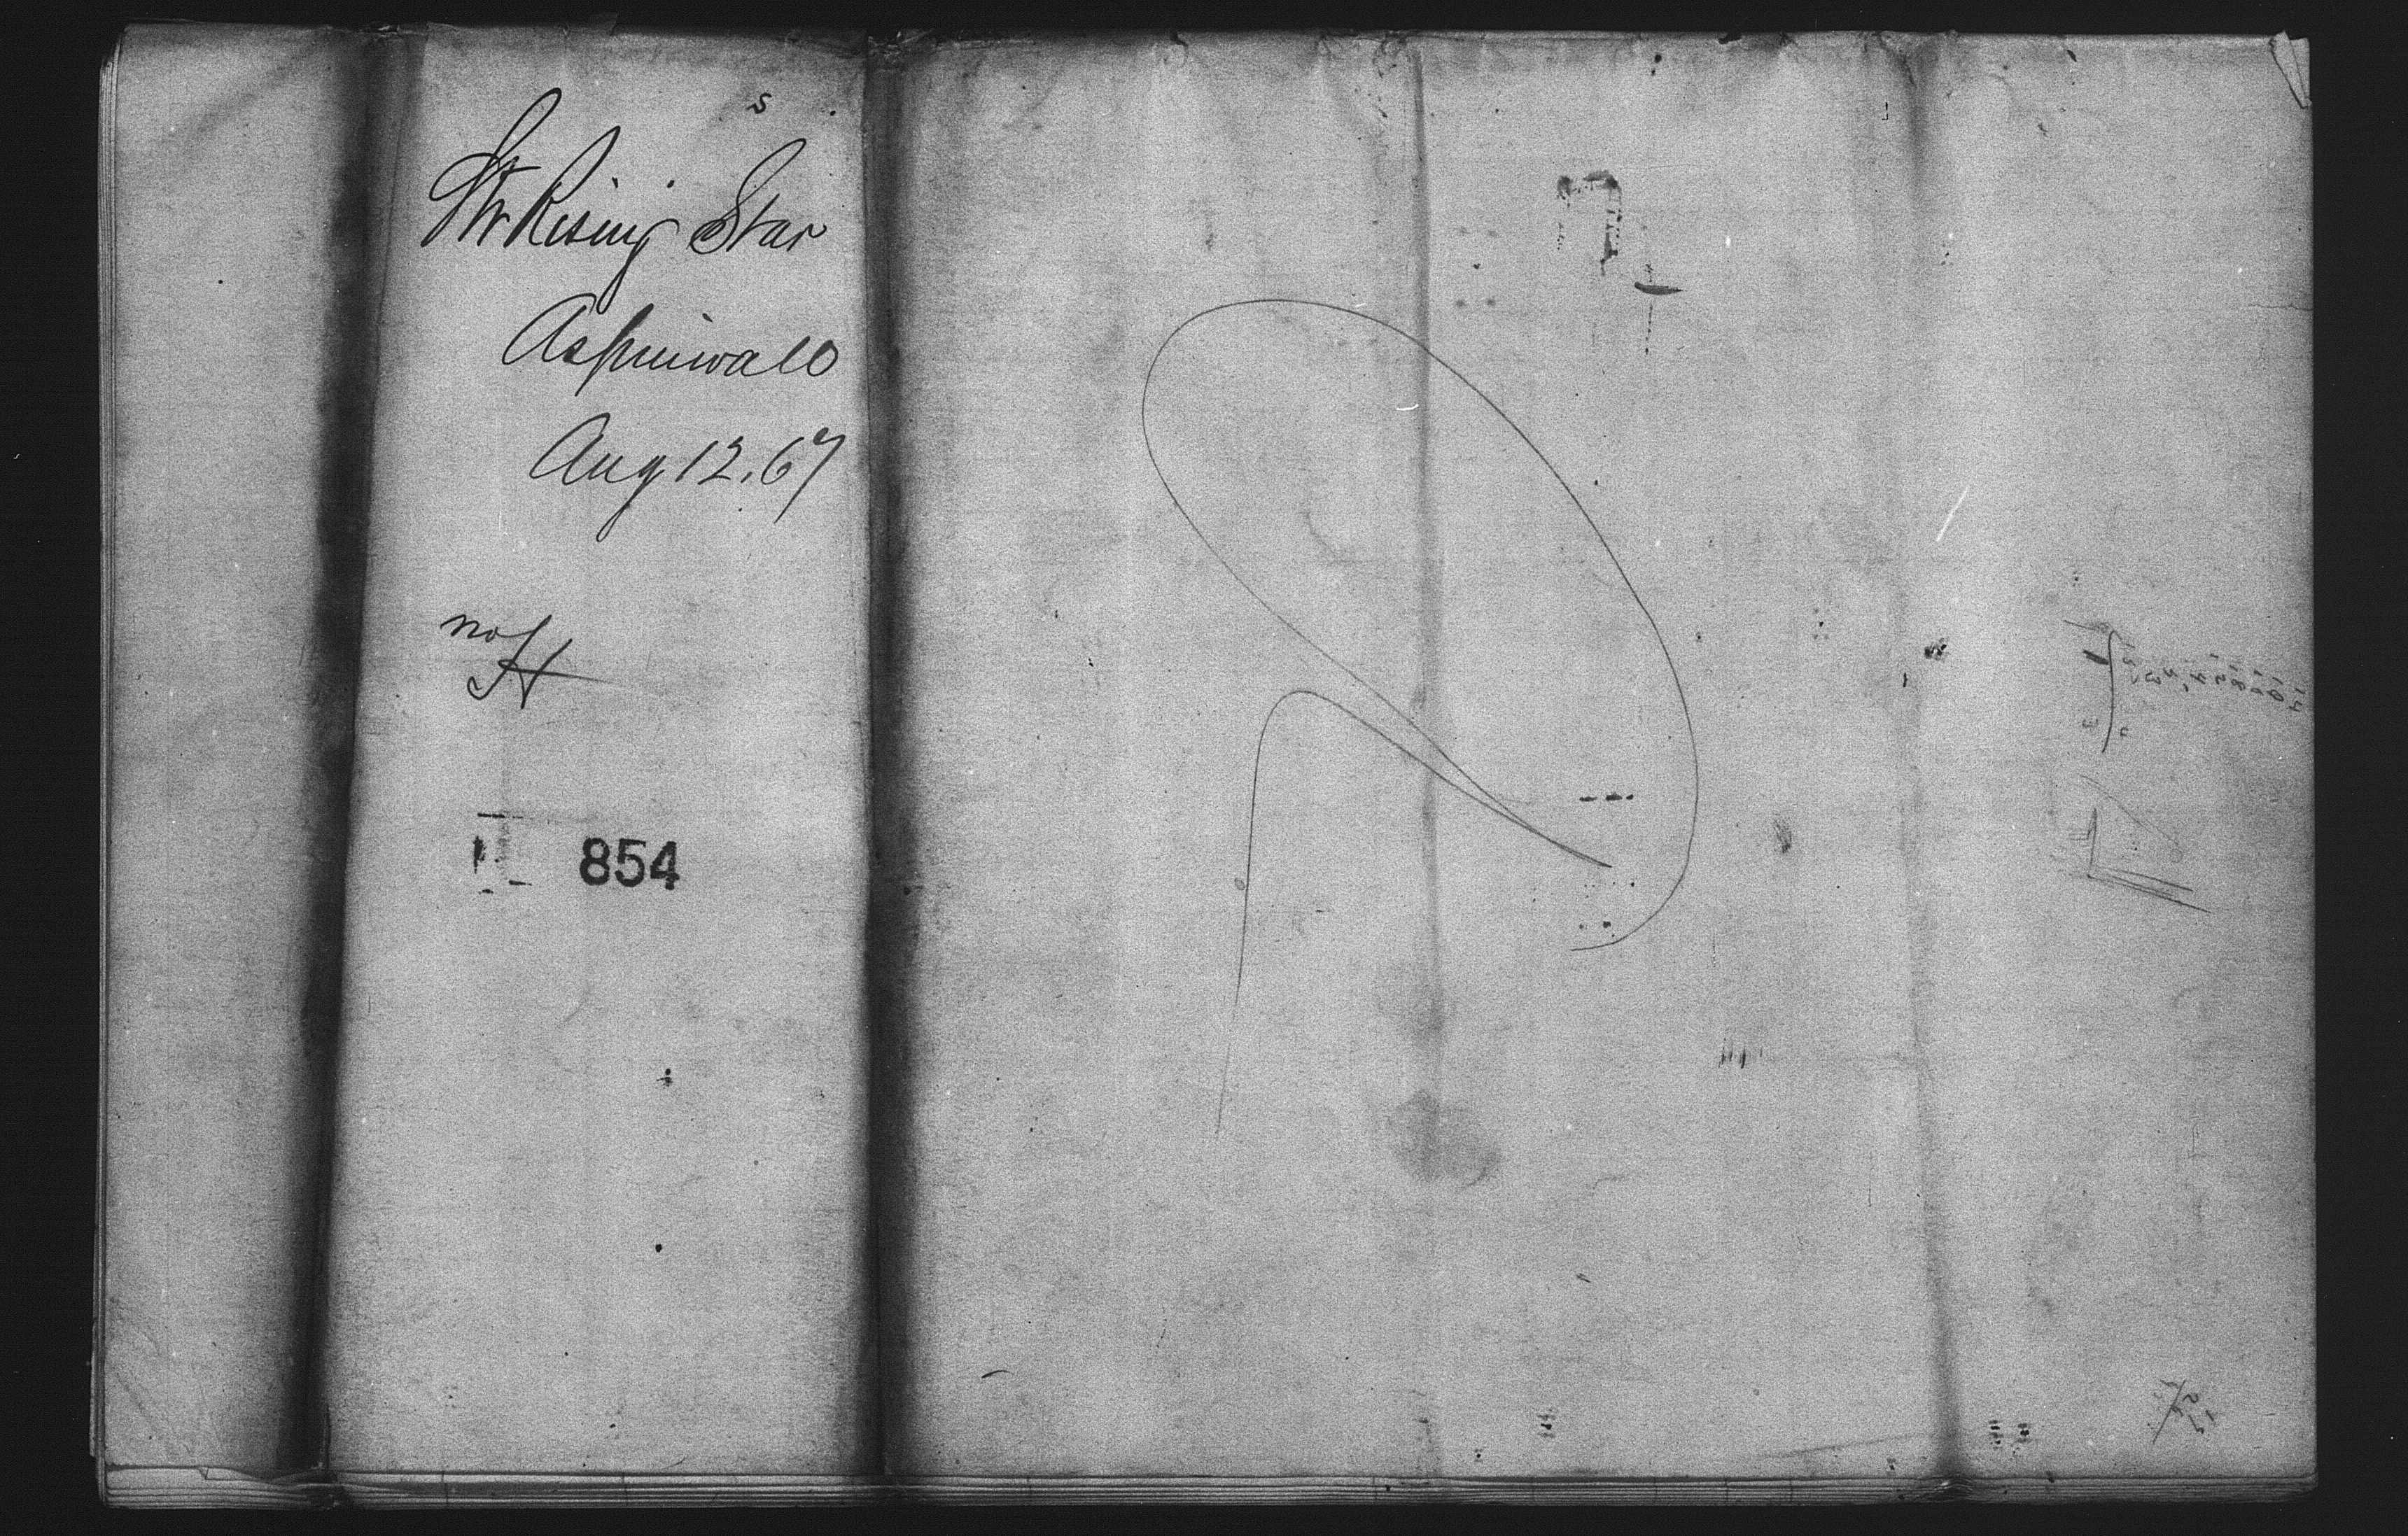 s
Str Rising Star
Aspinwall
Aug 12. 67
no H
854